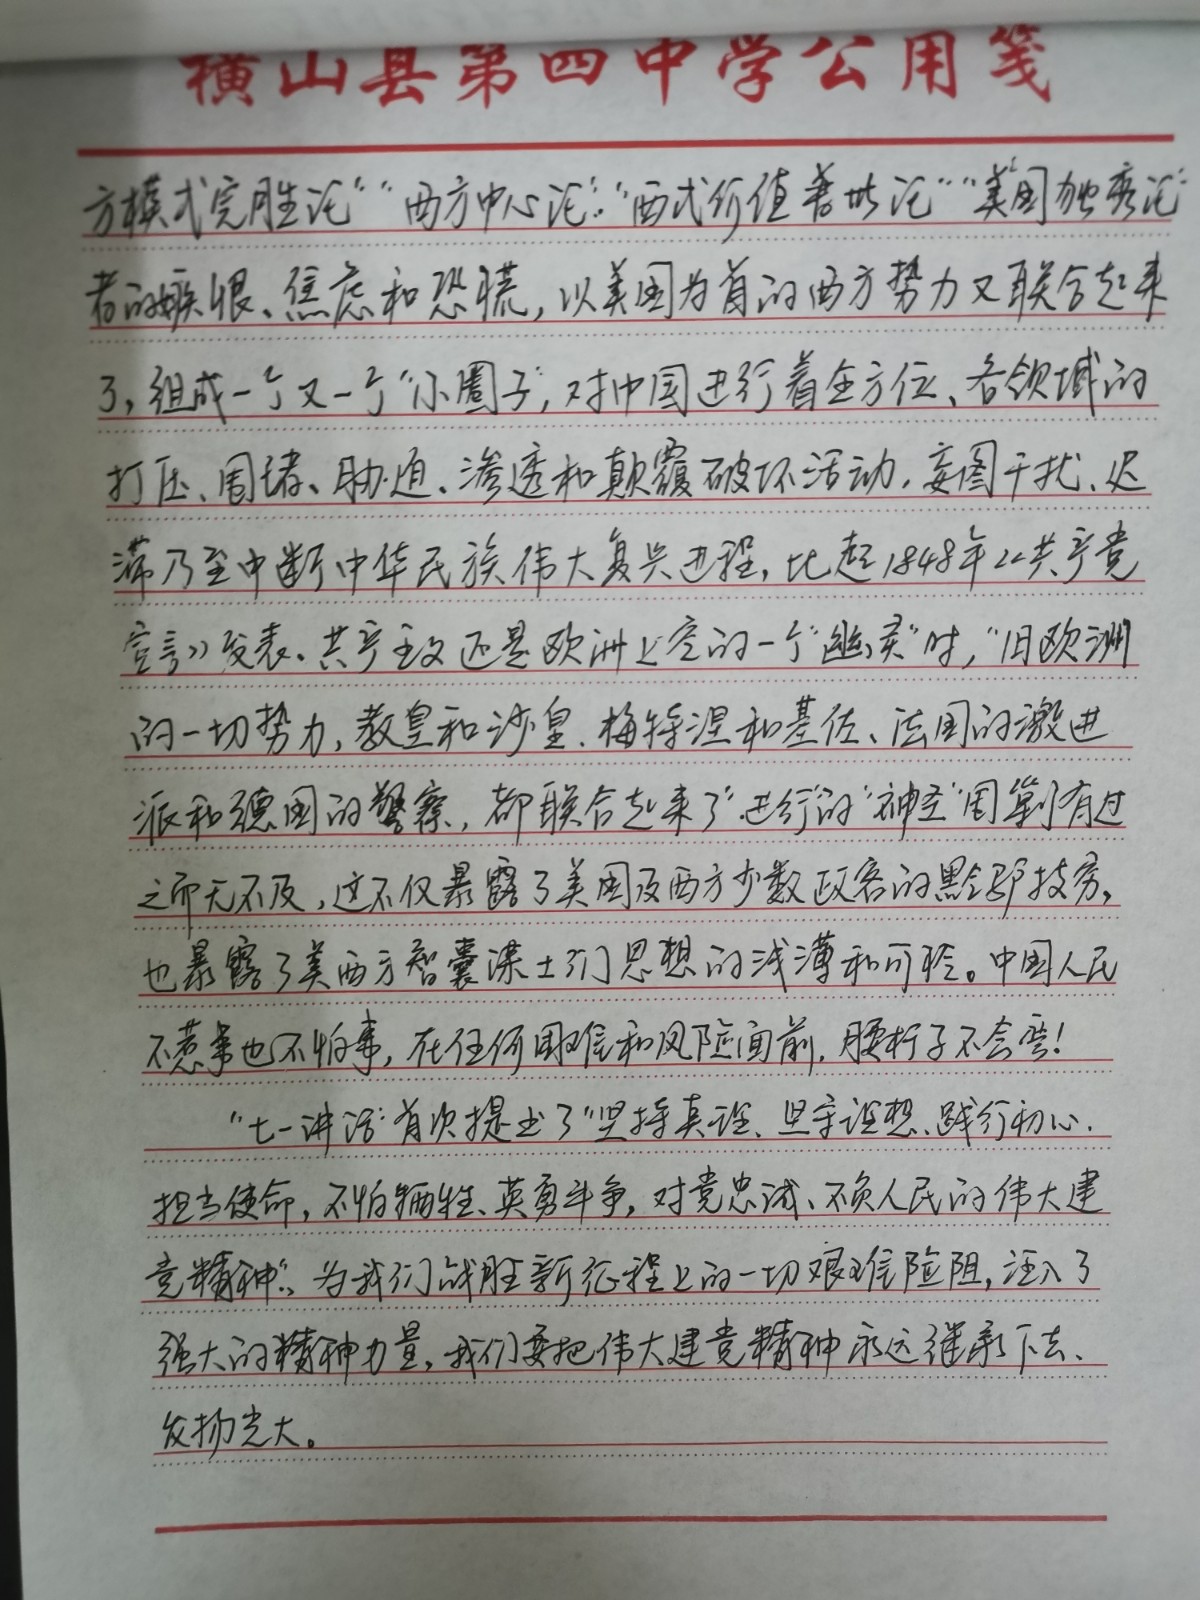 横山县第四中学公用笺
方模式完胜论""西方中心论"."西式价值普世论""美国独秀论"
者的嫉恨、焦虑和恐慌,以美国为首的西方势力又联合起来
了,组成一个又一个"小圈子",对中国进行着全方位、各领域的
打压、围堵、胁迫、渗透和颠覆破坏活动,妄图干扰、迟
滞乃至中断中华民族伟大复兴进程,比起1848年《共产党
宣言》发表、共产主义还是欧洲上空的一个"幽灵"时,"旧欧洲
的一切势力,教皇和沙皇、梅特涅和基佐、法国的激进
派和德国的警察,都联合起来了"进行的"神圣"围剿有过
之而无不及,这不仅暴露了美国及西方少数政客的黔驴技穷,
也暴露了美西方智囊谋士们思想的浅薄和可怜。中国人民
不惹事也不怕事,在任何困难和风险面前,腰杆子不会弯!
"七一讲话"首次提出了"坚持真理、坚守理想、践行初心、
担当使命,不怕牺牲、英勇斗争,对党忠诚、不负人民的伟大建
党精神",为我们战胜新征程上的一切艰难险阻,注入了
强大的精神力量,我们要把伟大建党精神永远继承下去、
发扬光大。